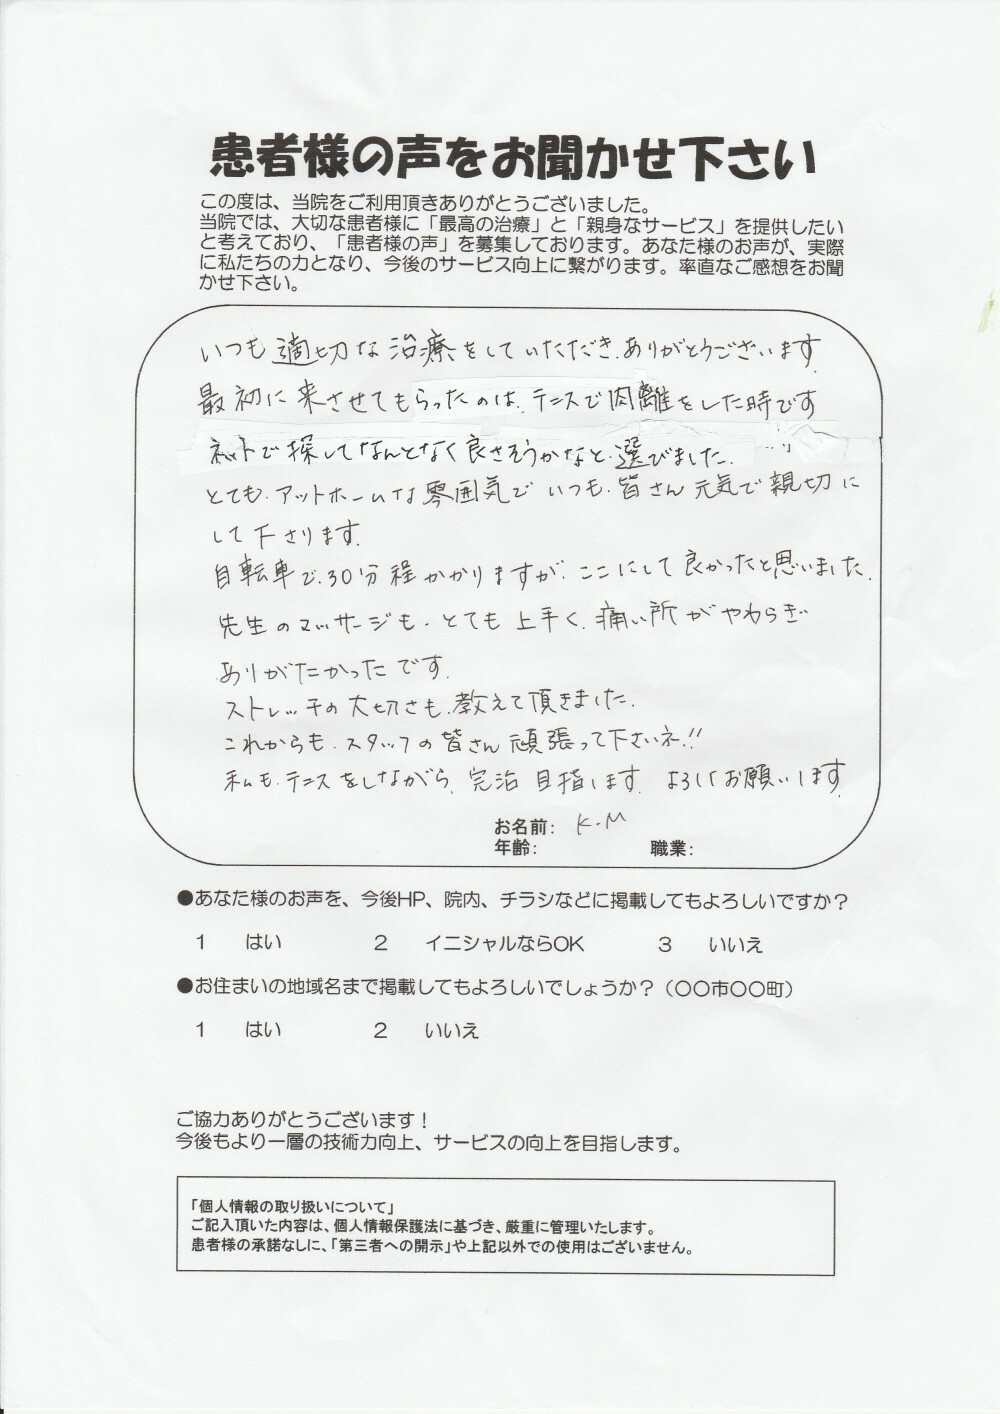 患者様の声をお聞かせ下さい
この度は、当院をご利用頂きありがとうございました。
当院では、大切な患者様に「最高の治療」と「親身なサービス」を提供したい
と考えており、「患者様の声」を募集しております。あなた様のお声が、実際
に私たちの力となり、今後のサービス向上に繋がります。率直なご感想をお聞
かせ下さい。
いつも適切な治療をしていただき、ありがとうございます。
最初に来させてもらったのは、テニスで肉離をした時です
ネットで探してなんとなく良さそうかなと、選びました。
とても、アットホームな雰囲気で いつも、皆さん元気で親切に
して下さります。
自転車で、30分程かかりますが、ここにして良かったと思いました。
先生のマッサージも、とても上手く、痛い所がやわらぎ
ありがたかったです。
ストレッチの大切さも、教えて頂きました。
これからも、スタッフの皆さん頑張って下さいネ!!
私も、テニスをしながら、完治目指します。よろしくお願いします
お名前: K.M
年齢: 職業:
●あなた様のお声を、今後HP、院内、チラシなどに掲載してもよろしいですか?
1 はい 2 イニシャルならOK 3 いいえ
●お住まいの地域名まで掲載してもよろしいでしょうか?(〇〇市〇〇町)
1 はい 2 いいえ
ご協力ありがとうございます!
今後もより一層の技術力向上、サービスの向上を目指します。
「個人情報の取り扱いについて」
ご記入頂いた内容は、個人情報保護法に基づき、厳重に管理いたします。
患者様の承諾なしに、「第三者への開示」や上記以外での使用はございません。